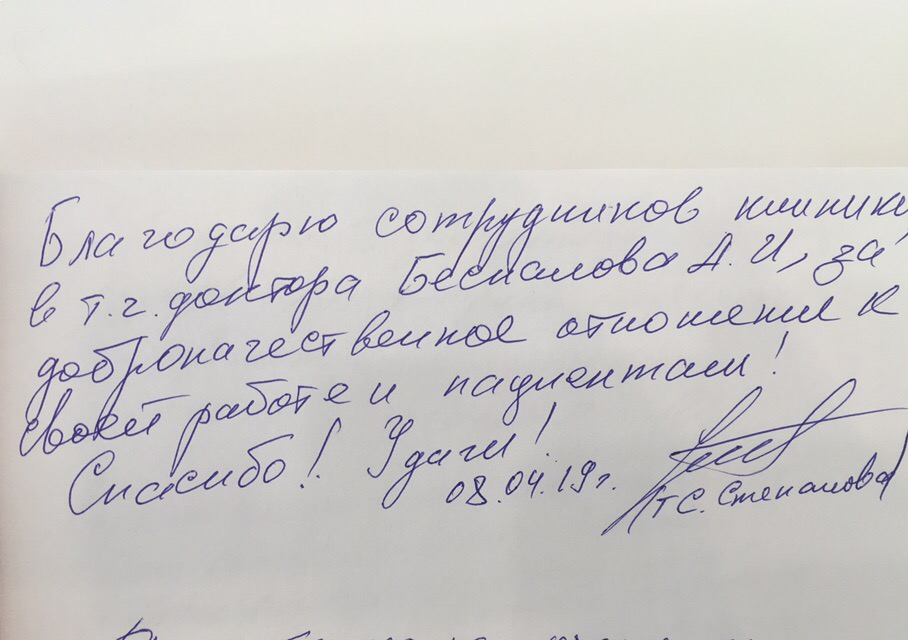 Благодарю сотрудников клиники
в т.г. доктора Беспалова А.И, за
доброкачественное отношение к
своей работе и пациентам!
Спасибо! Удачи!
08.04.19г.
Т С. Степанова